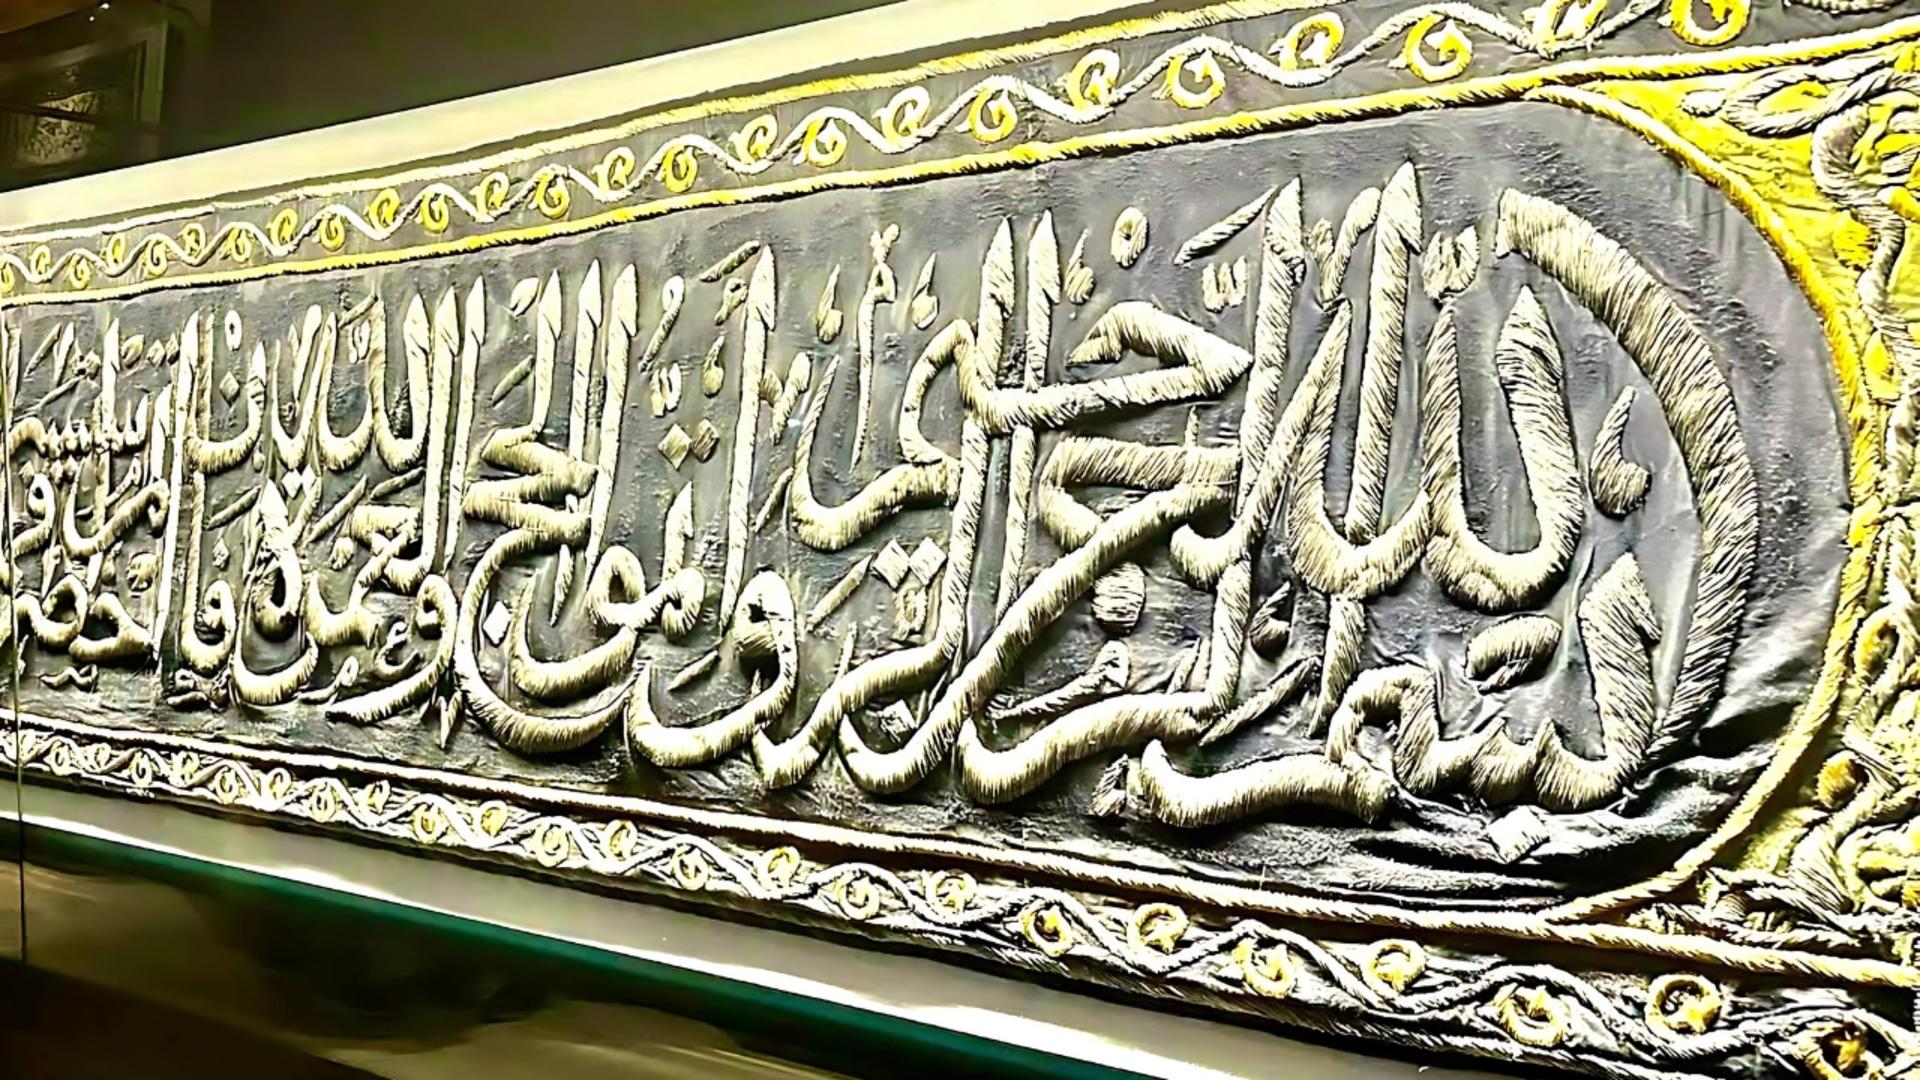 بسم الله الرحمن الرحيم وأتموا الحج والعمرة لله فإن أحصرتم فما استيسر